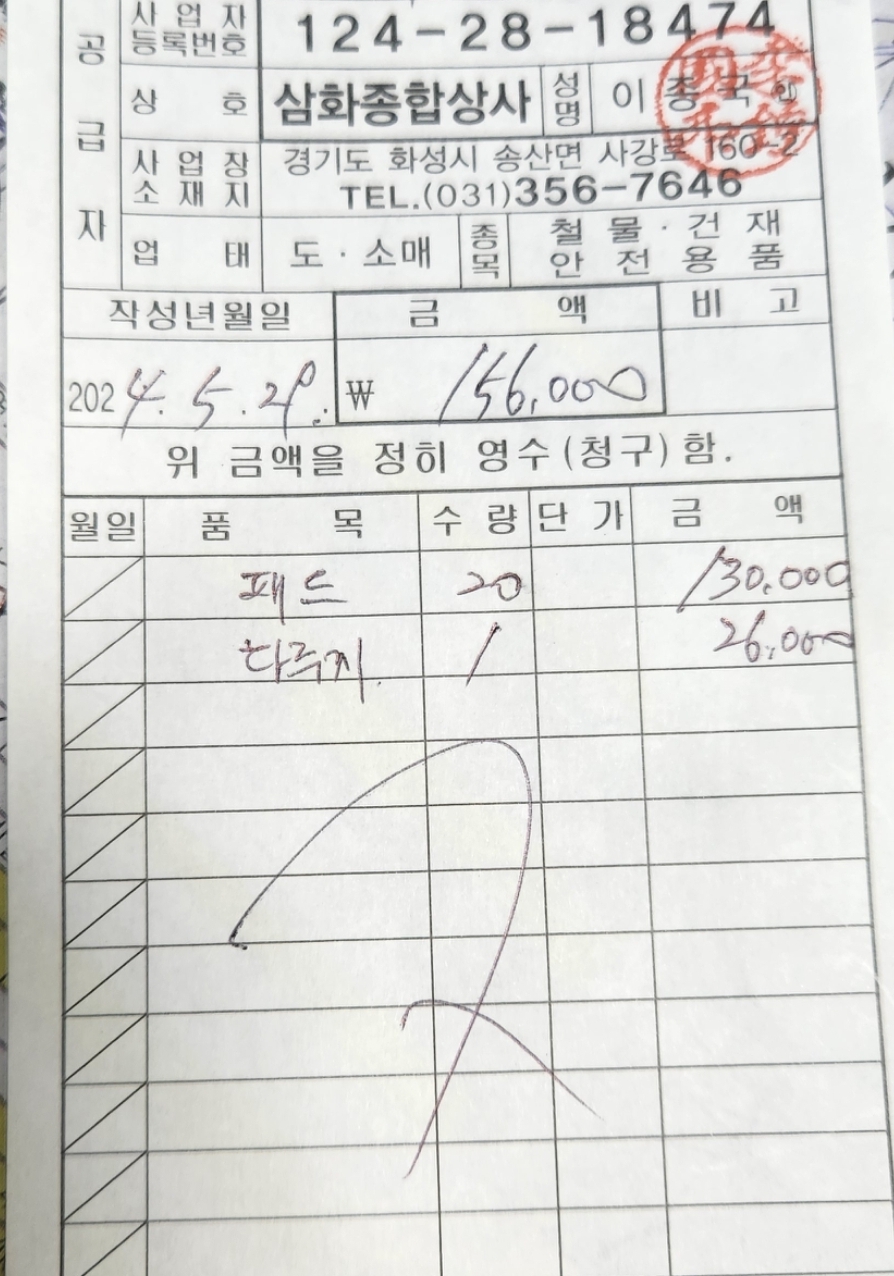 공급자
사업자등록번호 124-28-18474
상호 삼화종합상사 성명 이종국 ㊞
사업장소재지 경기도 화성시 송산면 사강로 160-2
TEL.(031)356-7646
업태 도·소매 종목 철물·건재
안전용품
작성년월일 금액 비고
2024.5.29. ₩ 156,000
위 금액을 정히 영수(청구)함.
월일 품목 수량 단가 금액
패드 20 130.000
1 26.000